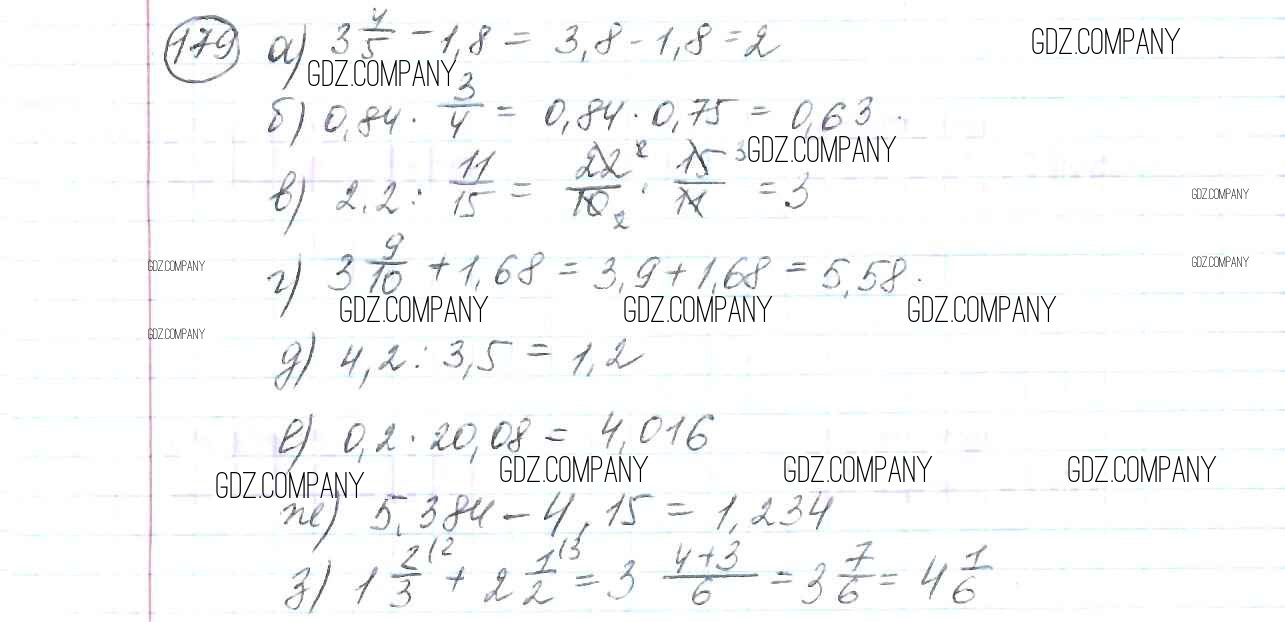 179 а) 3 4/5 - 1,8 = 3,8 - 1,8 = 2
GDZ.COMPANY
GDZ.COMPANY
б) 0,84 · 3/4 = 0,84 · 0,75 = 0,63.
GDZ.COMPANY
в) 2,2 : 11/15 = 22²/10₂ · 15³/11 = 3
GDZ.COMPANY
г) 3 9/10 + 1,68 = 3,9 + 1,68 = 5,58.
GDZ.COMPANY GDZ.COMPANY
GDZ.COMPANY GDZ.COMPANY GDZ.COMPANY
GDZ.COMPANY
д) 4,2 : 3,5 = 1,2
е) 0,2 · 20,08 = 4,016
GDZ.COMPANY GDZ.COMPANY GDZ.COMPANY GDZ.COMPANY
ж) 5,384 - 4,15 = 1,234
з) 1 2/3 (2 + 2 1/2 (3 = 3 4+3/6 = 3 7/6 = 4 1/6